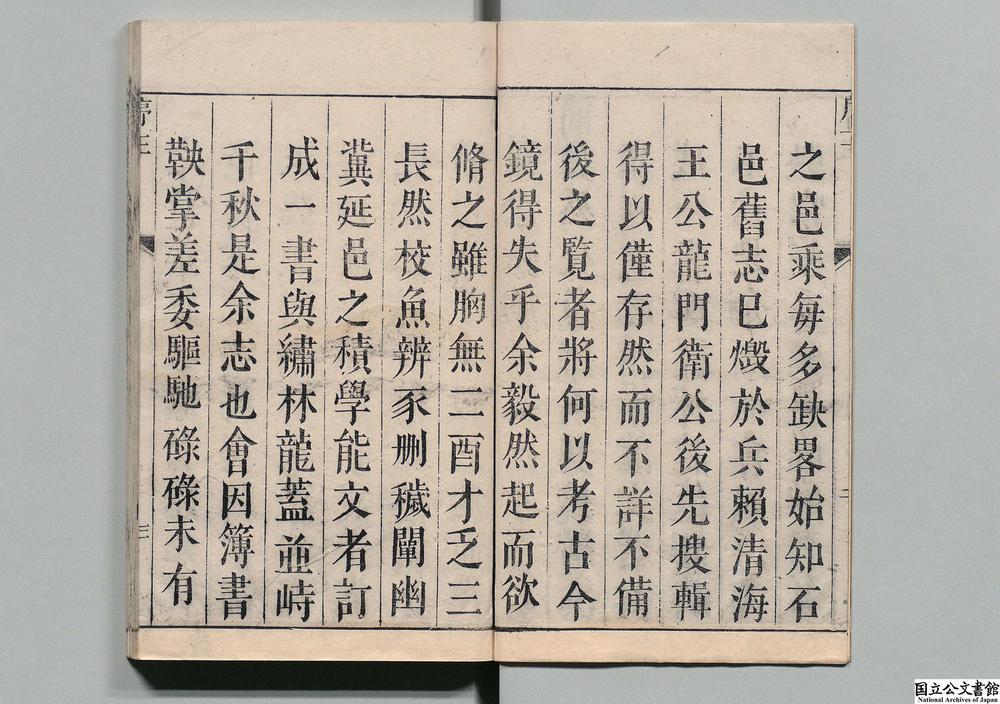 之邑乘每多缺畧始知石
邑舊志已燬於兵賴清海
王公龍門衛公後先搜輯
得以僅存然而不詳不備
後之覽者將何以考古今
鏡得失乎余毅然起而欲
脩之雖胸無二酉才乏三
長然校魚辨豕刪穢闡幽
冀延邑之積學能文者訂
成一書與繡林龍蓋並峙
千秋是余志也會因簿書
鞅掌差委驅馳碌碌未有
序三
三
国立公文書館
National Archives of Japan